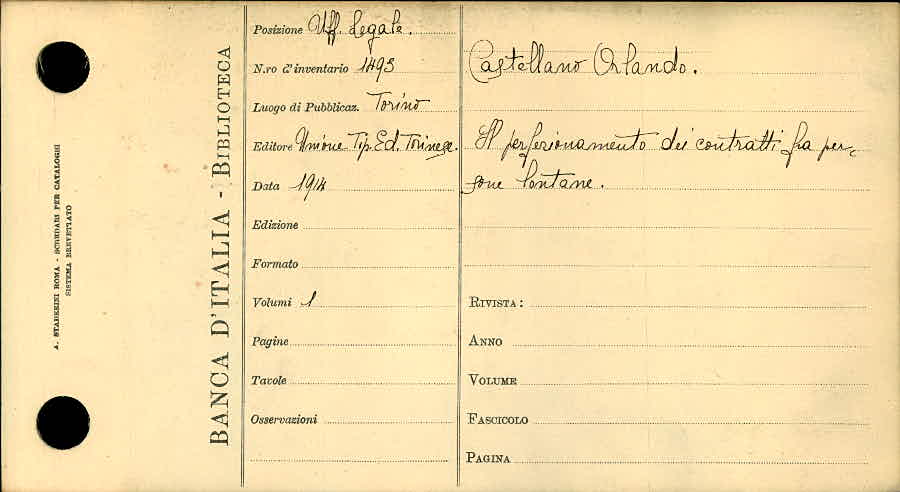 A. STADERINI ROMA - SCHEDARI PER CATALOGHI
SISTEMA BREVETTATO
BANCA D'ITALIA - BIBLIOTECA
Posizione Uff. Legale.
N.ro d'inventario 1493
Luogo di Pubblicaz. Torino
Editore Unione Tip. Ed. Torinese.
Data 1914
Edizione
Formato
Volumi 1
Pagine
Tavole
Osservazioni
Castellano Orlando.
Il perfezionamento dei contratti fra per=
sone lontane.
RIVISTA:
ANNO
VOLUME
FASCICOLO
PAGINA